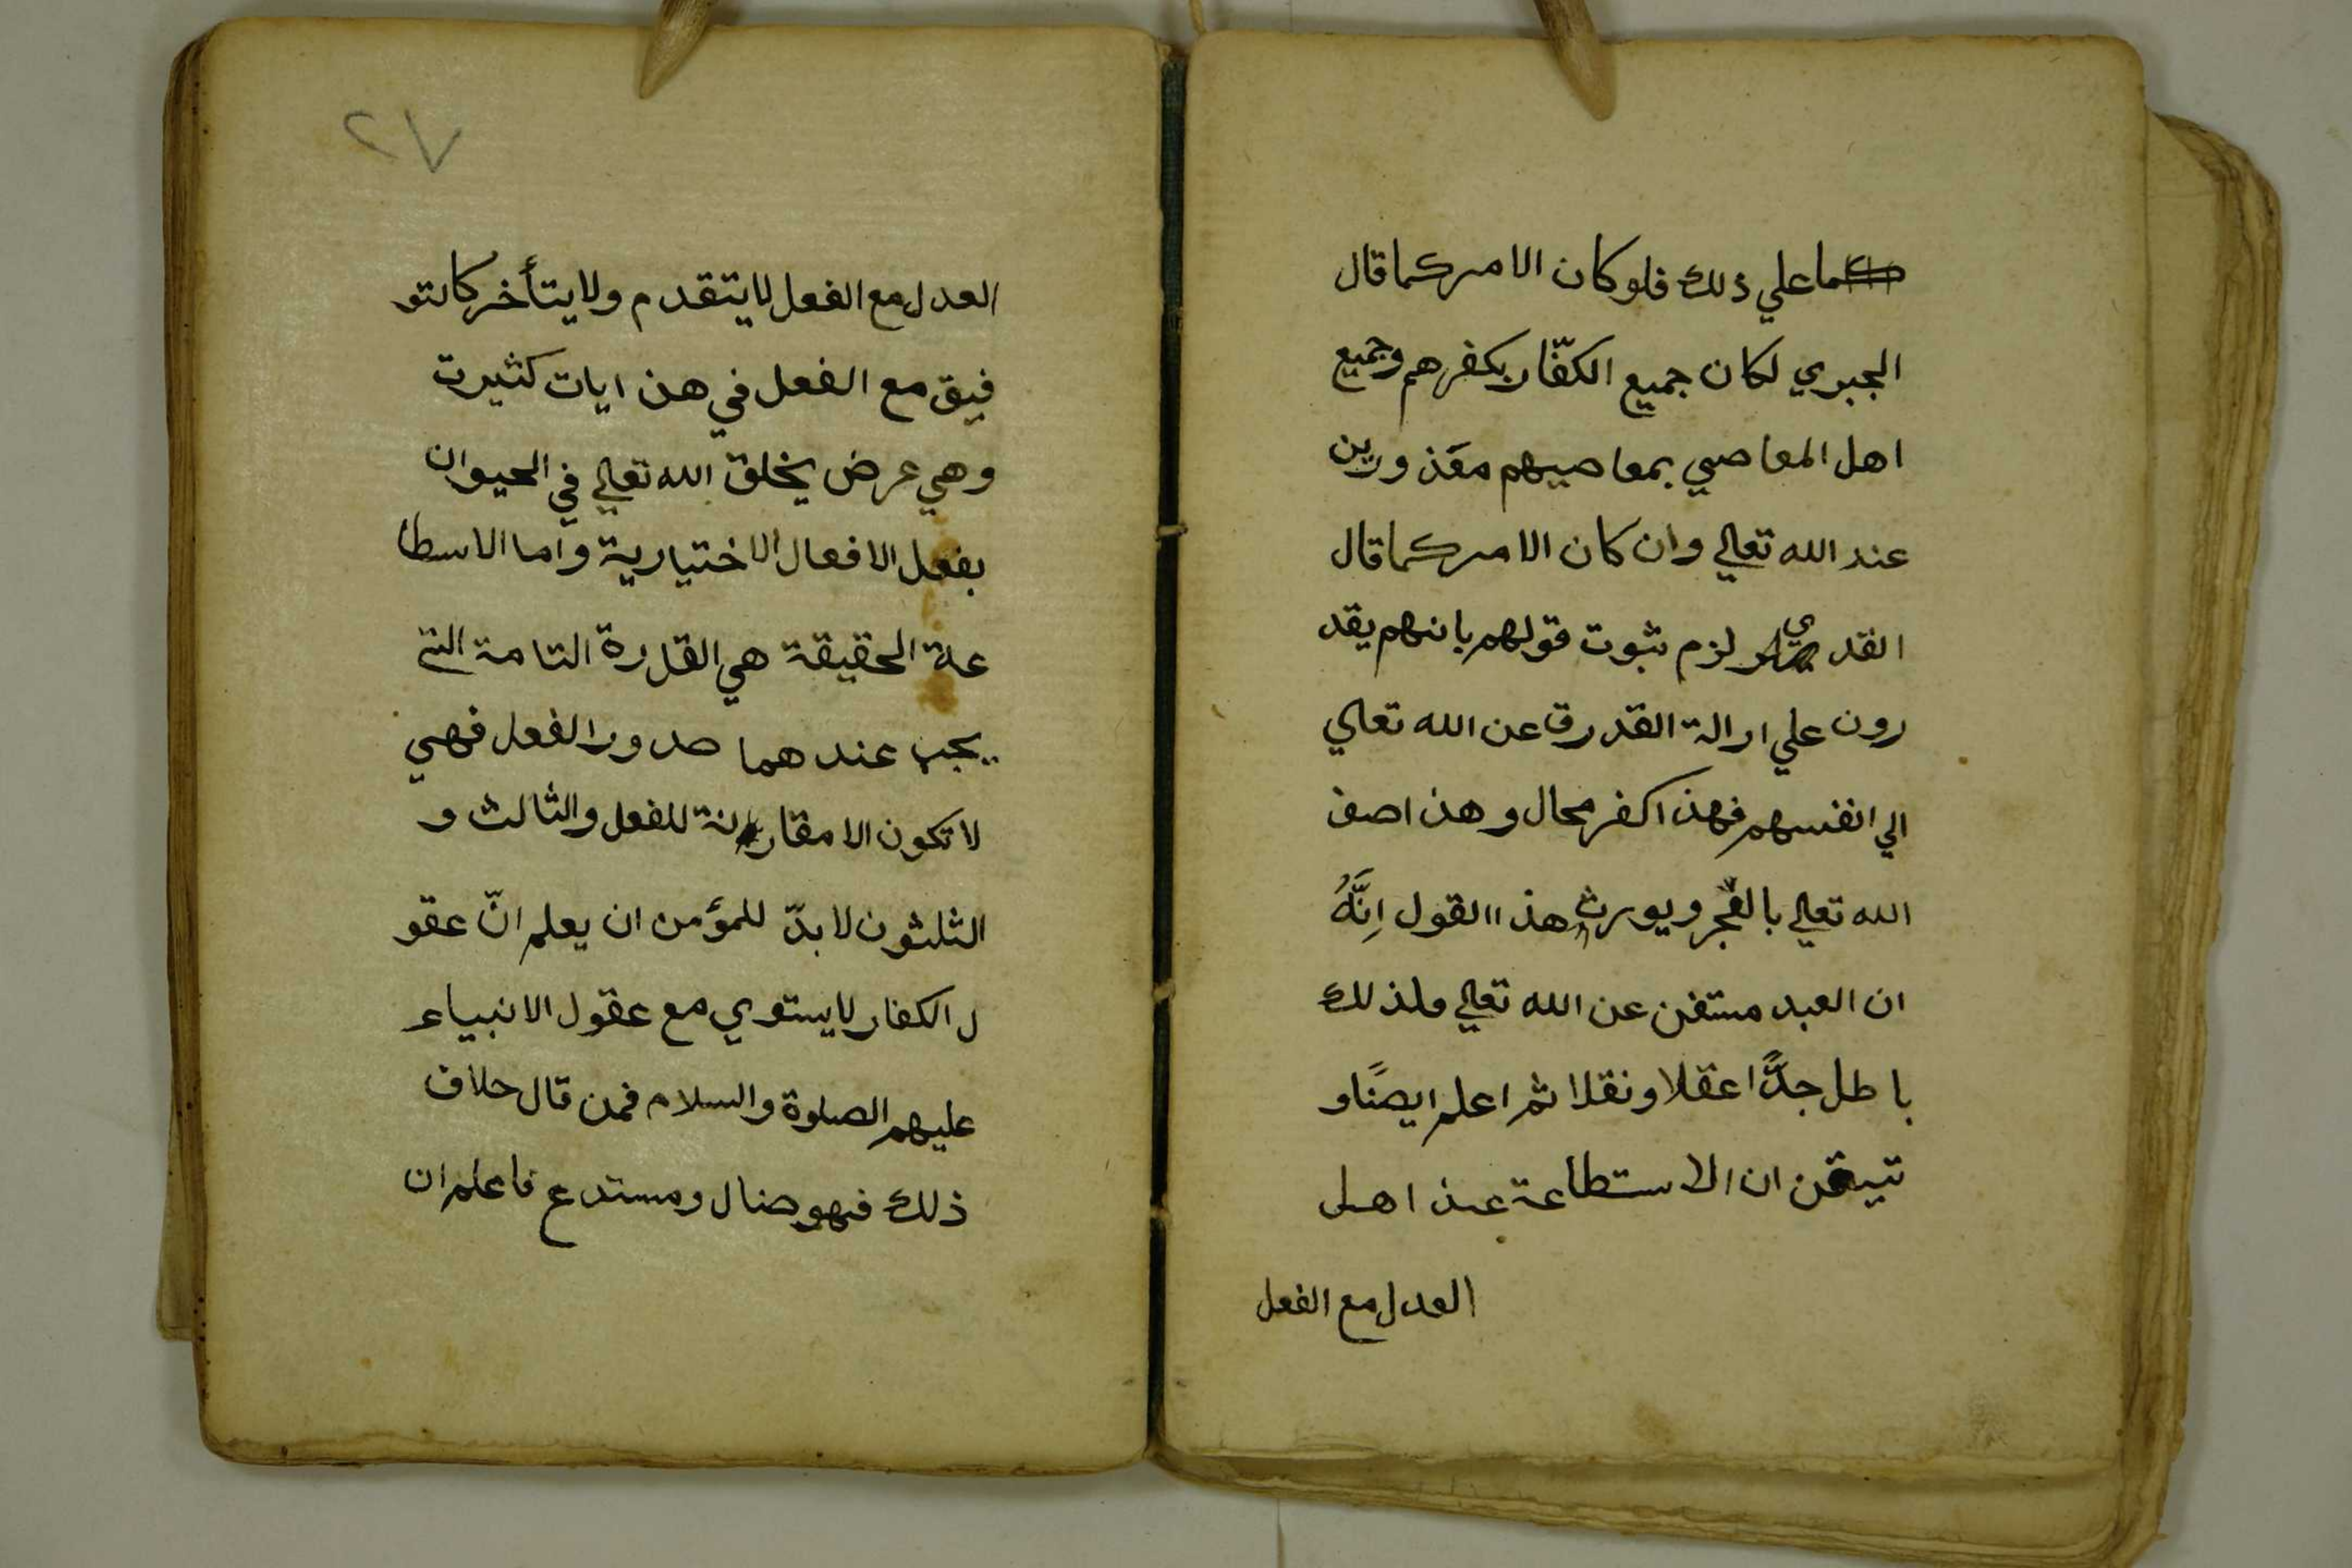 علي ذلك فلو كان الامر كما قال
الجبري لكان جميع الكفّار بكفرهم وجميع
اهل المعاصي بمعاصيهم معذورين
عند الله تعالي وان كان الامر كما قال
القدري لزم ثبوت قولهم بانهم يقد
رون علي ارالة القدرة عن الله تعالي
الي انفسهم فهذا كفر محال وهذا صف
الله تعالي بالعجز ويورث هذا القول اِنَّهُ
ان العبد مستغن عن الله تعالي فلذلك
باطل جدًّا عقلا ونقلا ثم اعلم ايضًا و
تيقن ان الاستطاعة عند اهل
العدل مع الفعل
٢٧
العدل مع الفعل لا يتقدم ولا يتأخر كالتو
فيق مع الفعل في هذا ايات كثيرت
وهي عرض يخلق الله تعالي في الحيوان
بفعل الافعال الاختيارية واما الاسطا
عة الحقيقة هي القدرة التامة التي
يجب عندهما صدور الفعل فهي
لا تكون الا مقارنة للفعل والثالث و
الثلثون لا بدّ للمؤمن ان يعلم انّ عقو
ل الكفار لا يستوي مع عقول الانبياء
عليهم الصلوة والسلام فمن قال حلاف
ذلك فهو ضال ومستدع فاعلم ان